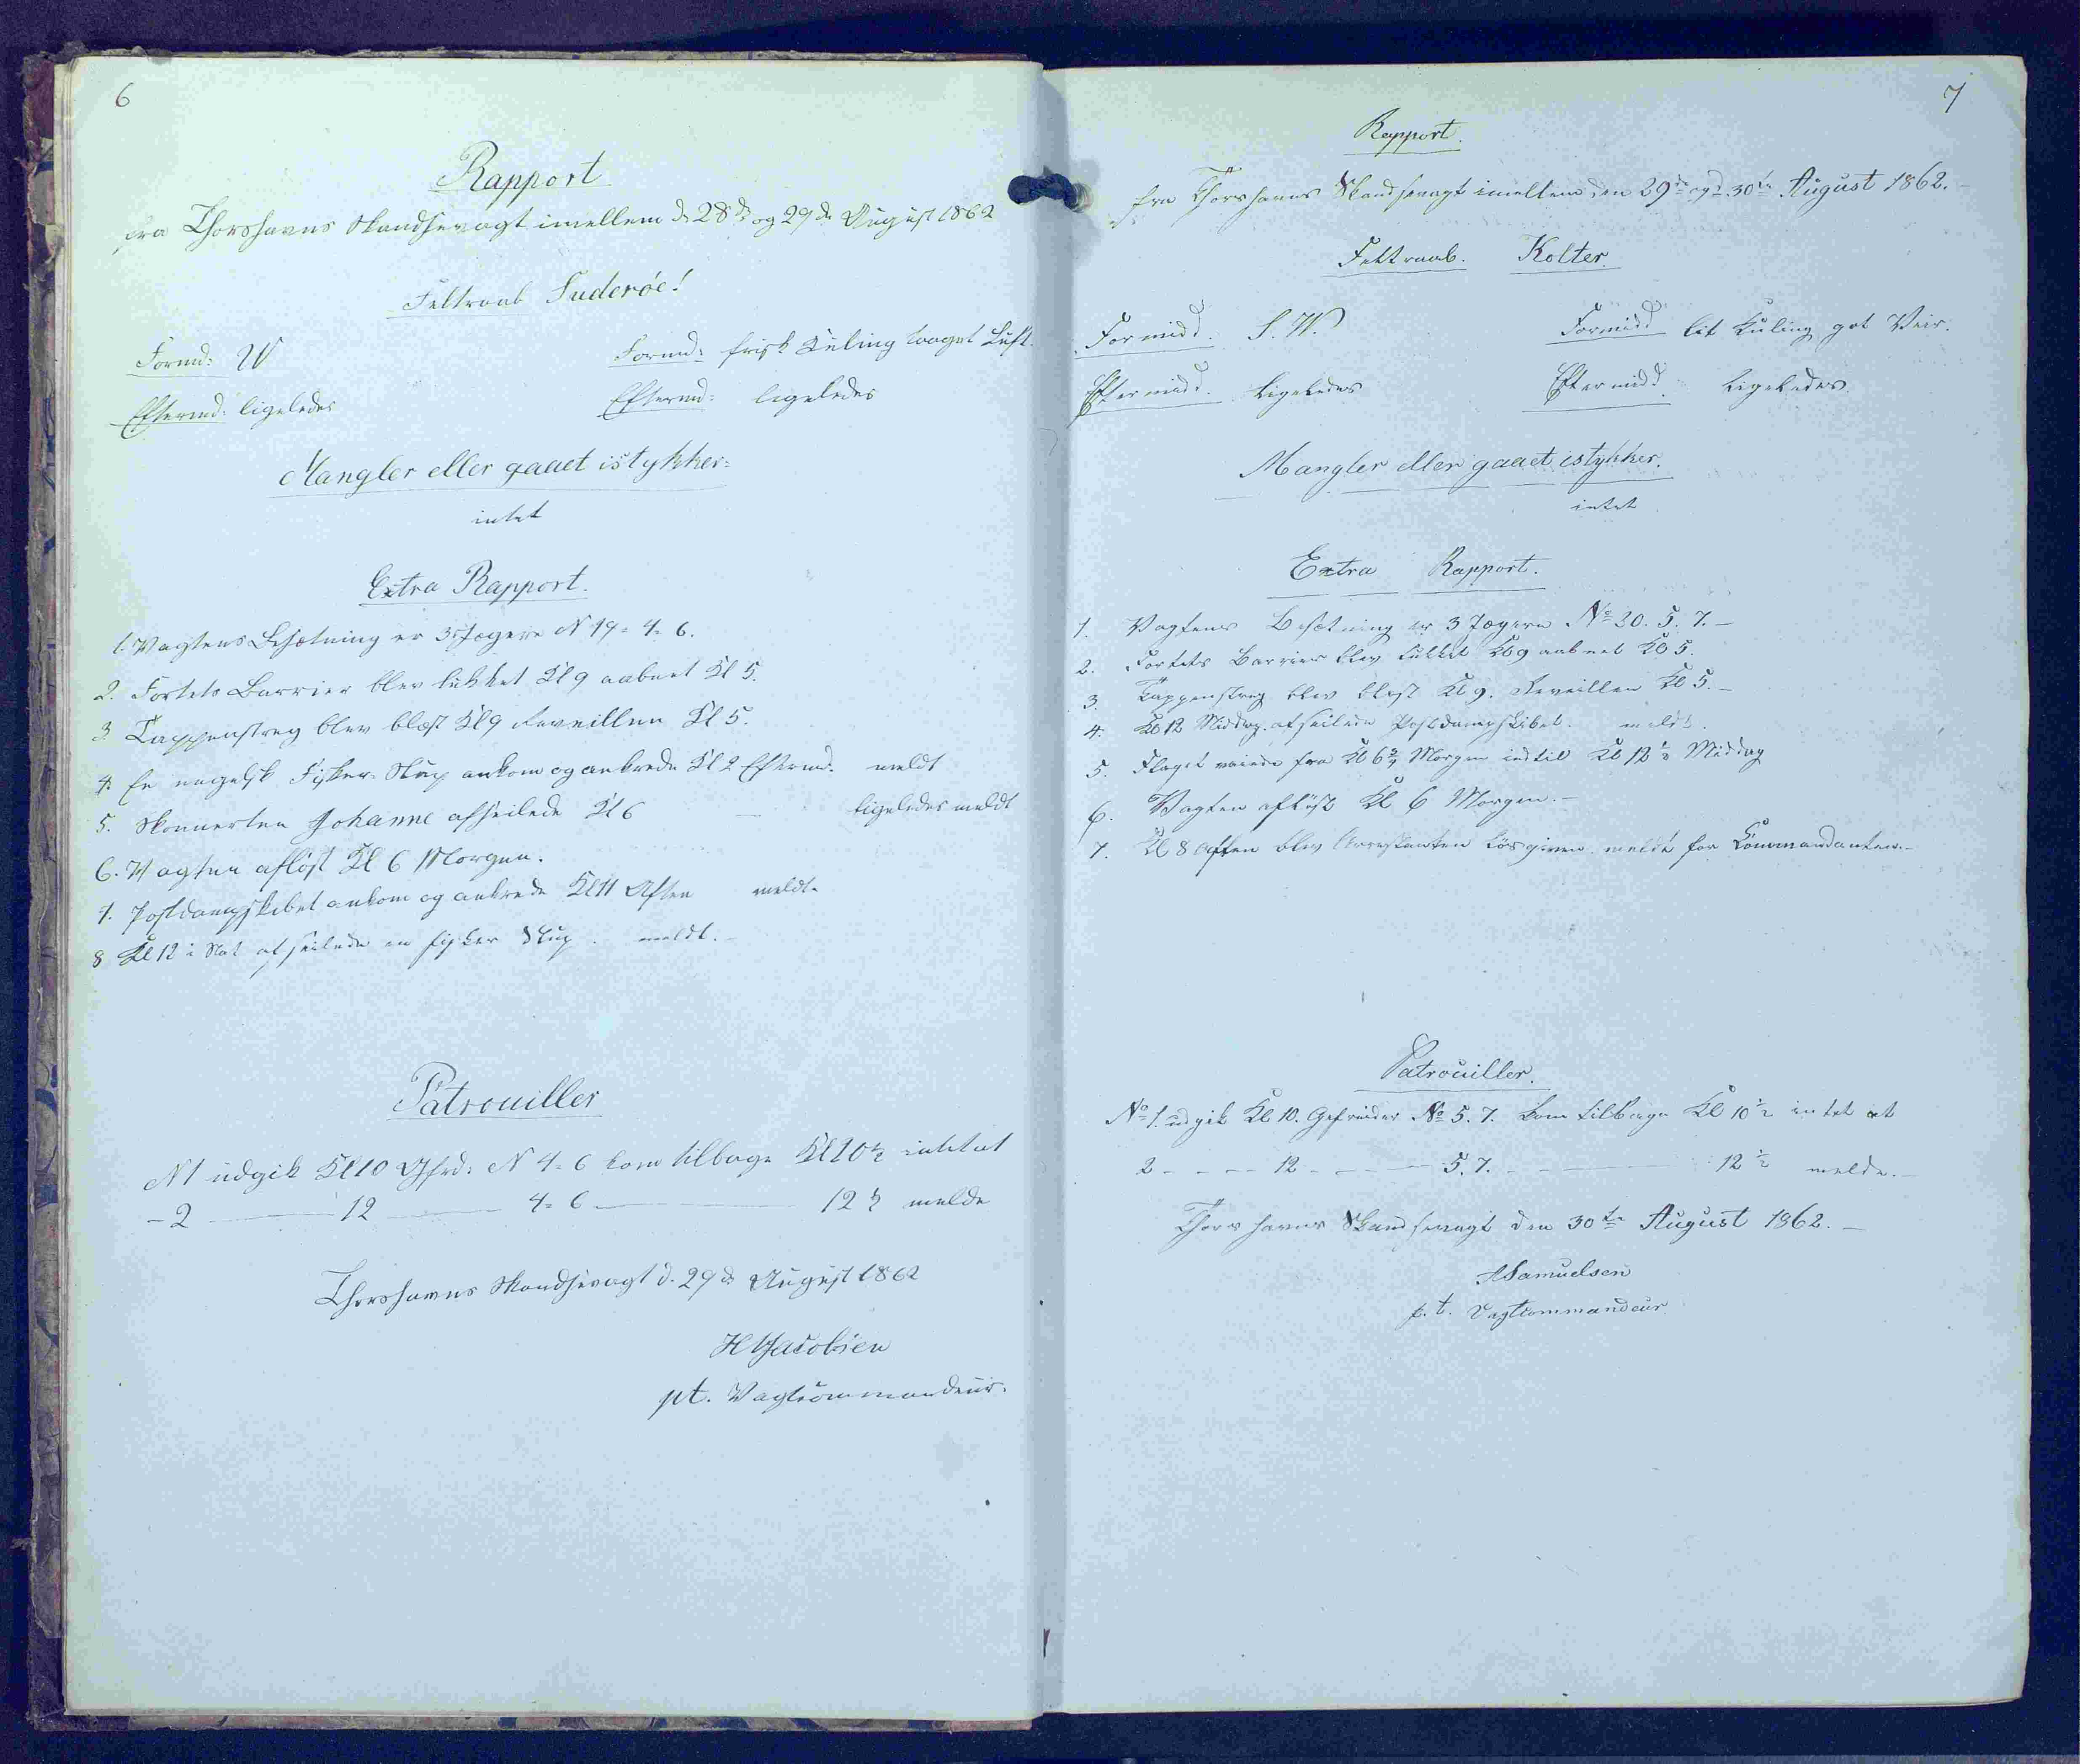 6
Rapport
fra Thorshavns Skandsevagt imellem d. 28de og 29de August 1862
Feltraab Suderöe!
Formd: W Formd: frisk Kuling taaget Luft.
Eftermd: ligeledes Eftermd: ligeledes
Mangler eller gaaet istykker:
intet
Extra Rapport.
1. Vagtens Besætning er 3 Jægere N 19 = 4 = 6.
2. Fortets Barrier blev lukket Kl 9 aabnet Kl 5.
3 Tappenstreg blev blæst Kl 9 Reveillen Kl 5.
4. En engelsk Fisker-Slup ankom og ankrede Kl 2 Eftermd. meldt
5. Skonnerten Johanne afseilede Kl 6 — ligeledes meldt
6. Vagten aflöst Kl 6 Morgen.
7. Postdampskibet ankom og ankrede Kl 11 Aften meldt.
8 Kl 12 i Nat afseilede en fisker Slup. meldt.
Patrouiller
N 1 udgik Kl 10 Gfrd: N 4 = 6 kom tilbage Kl 10 ½ intet at
- 2 — 12 — 4 = 6 — 12 ½ melde
Thorshavns Skandsevagt d. 29de August 1862
H Jacobsen
pt. Vagtcommandeur.
7
Rapport.
fra Thorshavns Skandsevagt imellem den 29de og 30te August 1862.
Feltraab. Kolter.
Formidd. S. W. Formidd lit Kuling got Veir.
Eftermidd. Ligeledes Eftermidd. Ligeledes
Mangler eller gaaet istykker.
intet
Extra Rapport.
1. Vagtens Besætning er 3 Jægere No 20. 5. 7. —
2. Fortets Barrier blev lukket Kl 9 aabnet Kl 5.
3. Tappenstreg blev blæst Kl 9. Reveillen Kl 5. —
4. Kl 12 Middag. afseilede Postdampskibet. meldt.
5. Flaget vaiede fra Kl 6 ¾ Morgen indtil Kl 12 ½ Middag
6. Vagten aflöst Kl 6 Morgen. —
7. Kl 8 Aften blev Arrestanten lösgiven meldt for Kommandanten. —
Patrouiller.
No 1. udgik Kl 10. Gefreider No 5. 7. kom tilbage Kl 10 ½ intet at
2 - - - - 12 - - - - 5. 7. - - 12 ½ melde. —
Thorshavns Skandsevagt den 30te August 1862. —
Samuelsen
p. t. Vagtcommandeur.